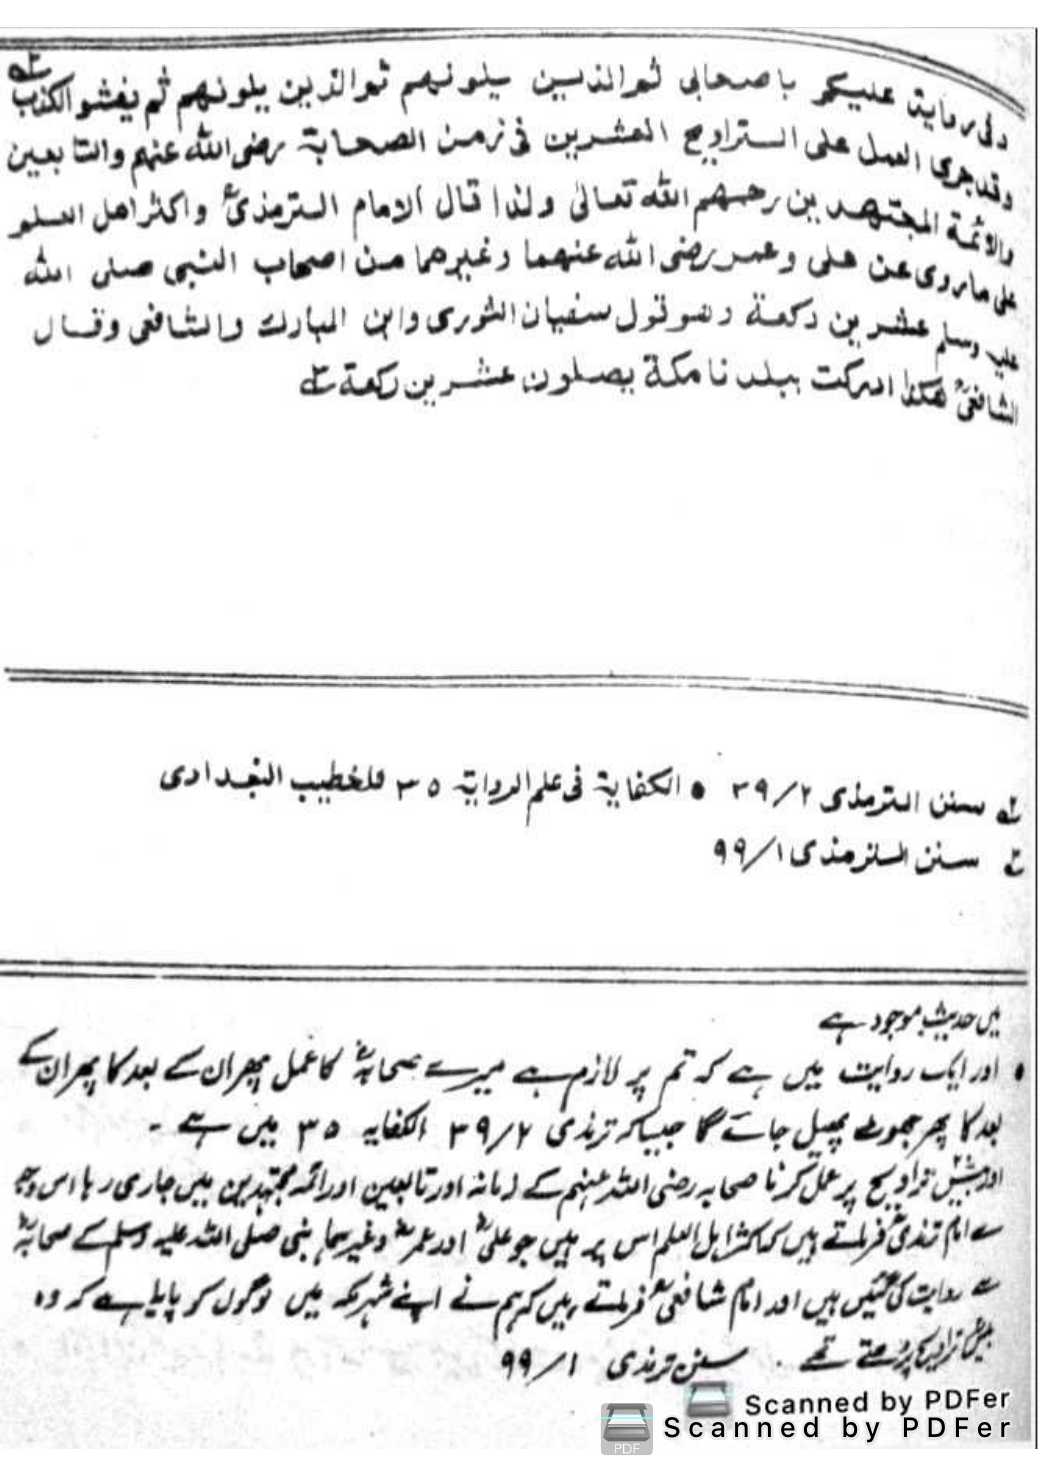 وفی روایة علیکم باصحابی ثم الذین یلونهم ثم الذین یلونهم ثم یفشو الکذب
وقد جری العمل علی التراویح العشرین فی زمن الصحابة رضی الله عنهم والتابعین
والائمة المجتهدین رحمهم الله تعالی ولذا قال الامام الترمذیؒ واکثر اهل العلم
علی ما روی عن علی وعمر رضی الله عنهما وغیرهما من اصحاب النبی صلی الله
علیه وسلم عشرین رکعة وهو قول سفیان الثوری وابن المبارک والشافعی وقال
الشافعیؒ هکذا ادرکت ببلدنا مکة یصلون عشرین رکعة
سنن الترمذی ۳۹/۲ • الکفایة فی علم الروایة ۳۵ للخطیب البغدادی
سنن الترمذی ۹۹/۱
میں حدیث موجود ہے
• اور ایک روایت میں ہے کہ تم پر لازم ہے میرے صحابہؓ کا عمل پھر ان کے بعد کا پھر ان کے
بعد کا پھر جھوٹ پھیل جائے گا جیسا کہ ترمذی ۳۹/۲ الکفایہ ۳۵ میں ہے ۔
اور بیس تراویح پر عمل کرنا صحابہ رضی اللہ عنہم کے زمانہ اور تابعین اور ائمہ مجتہدین میں جاری رہا اس وجہ
سے امام ترمذیؒ فرماتے ہیں کہ اکثر اہل العلم اس پر ہیں جو علیؓ اور عمرؓ وغیرہما نبی صلی اللہ علیہ وسلم کے صحابہؓ
سے روایت کی گئیں ہیں اور امام شافعیؒ فرماتے ہیں کہ ہم نے اپنے شہر مکہ میں لوگوں کو پایا ہے کہ وہ
بیس تراویح پڑھتے تھے . سنن ترمذی ۹۹/۱
Scanned by PDFer
Scanned by PDFer
PDF